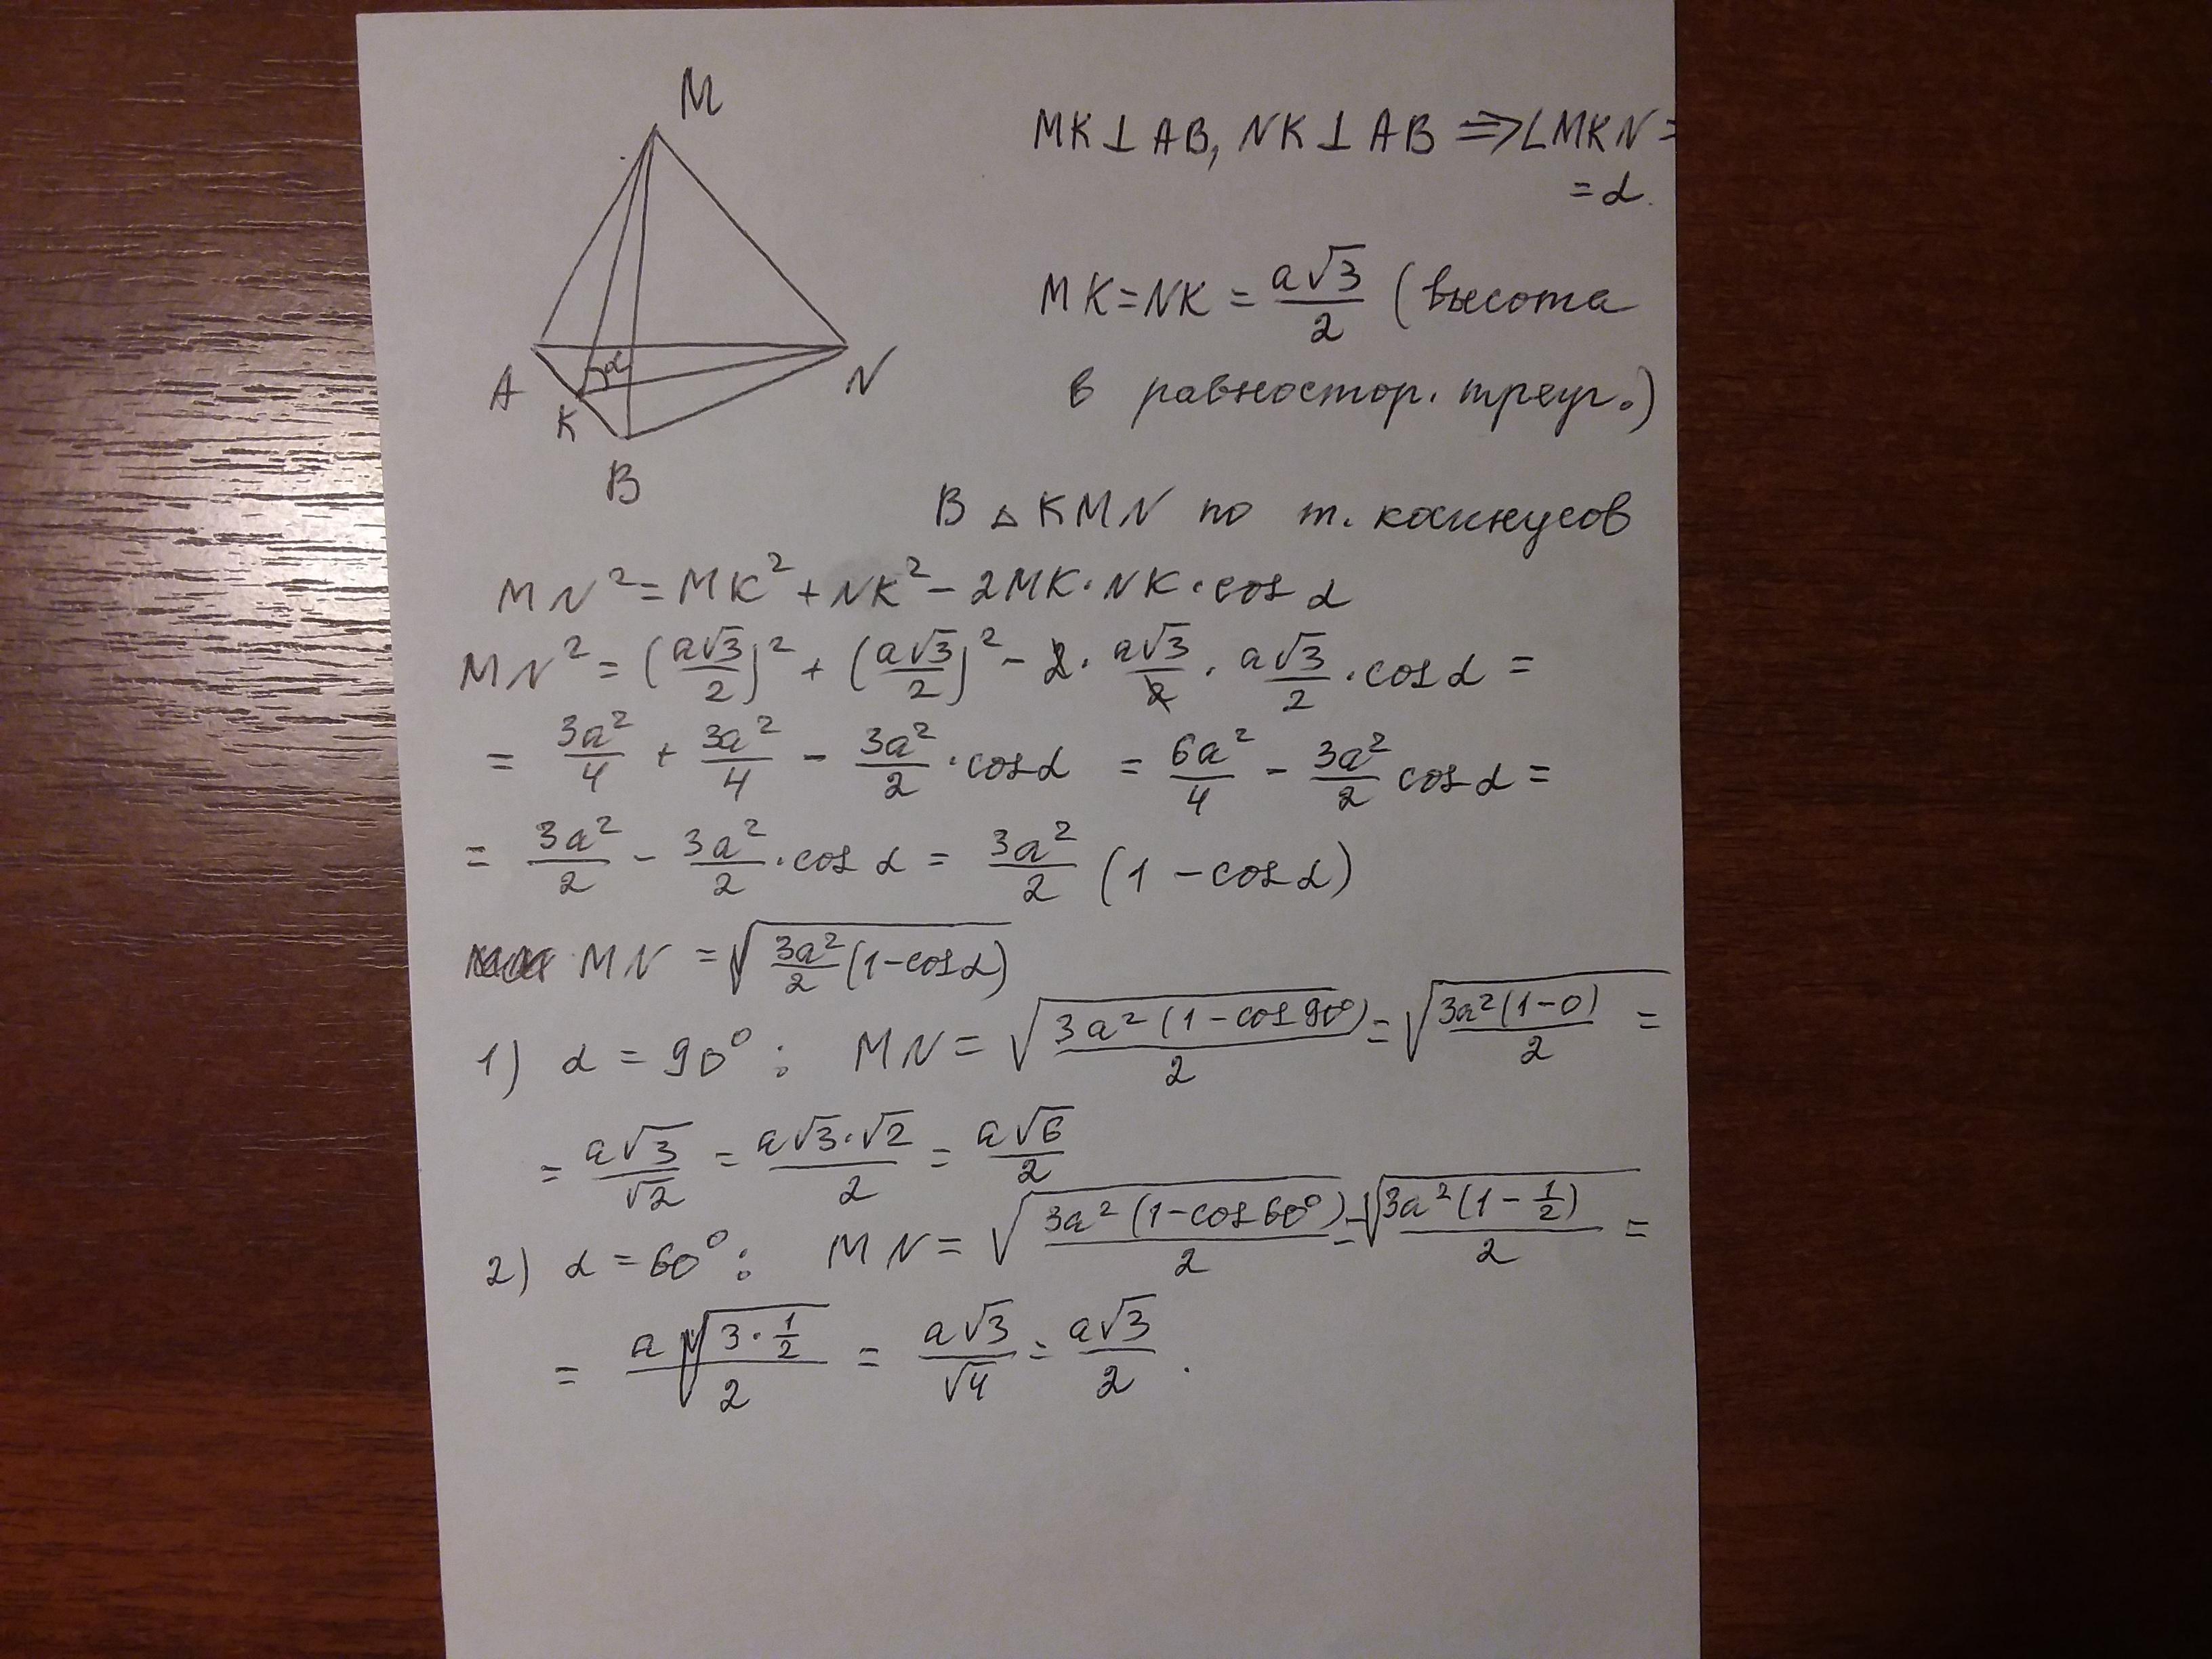 M
A
K
α
N
B
MK⊥AB, NK⊥AB ⟹ ∠MKN =
= α.
MK = NK = a√3/2 (высота
в равностор. треуг.)
В △KMN по т. косинусов
MN² = MK² + NK² − 2MK·NK·cos α
MN² = (a√3/2)² + (a√3/2)² − 2·a√3/2·a√3/2·cos α =
= 3a²/4 + 3a²/4 − 3a²/2·cos α = 6a²/4 − 3a²/2 cos α =
= 3a²/2 − 3a²/2·cos α = 3a²/2 (1 − cos α)
MN = √(3a²/2 (1−cos α))
1) α = 90°: MN = √(3a²(1−cos 90°)/2) = √(3a²(1−0)/2) =
= a√3/√2 = a√3·√2/2 = a√6/2
2) α = 60°: MN = √(3a²(1−cos 60°)/2) = √(3a²(1−1/2)/2) =
= a√(3·1/2)/2 = a√3/√4 = a√3/2.